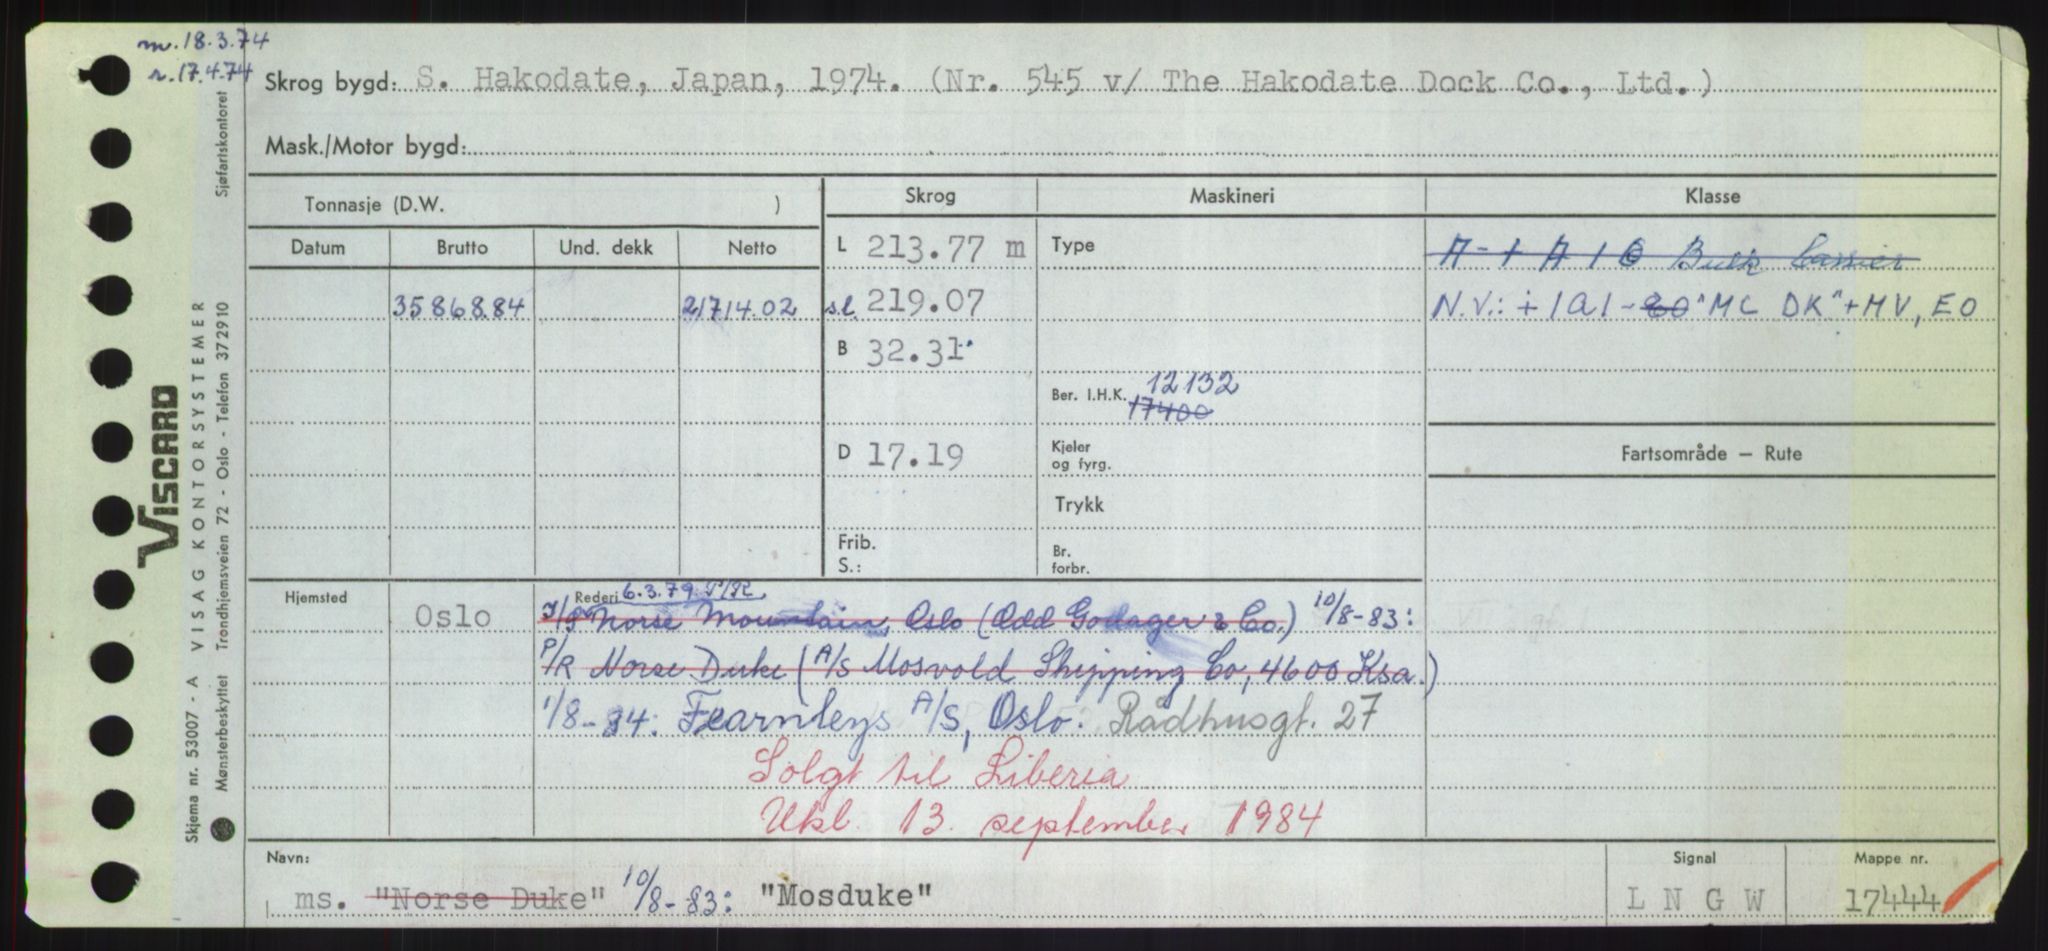 m. 18.3.74
r. 17.4.74
Skrog bygd: S. Hakodate, Japan, 1974. (Nr. 545 v/ The Hakodate Dock Co., Ltd.)
Mask./Motor bygd:
Tonnasje (D.W. )
Skrog
Maskineri
Klasse
Datum
Brutto
Und. dekk
Netto
L 213.77 m
Type
A-1 A 1 C Bulk Carrier
35868.84
21714.02
s.l. 219.07
N.V.: + 1A1 - 80 "MC DK" + MV, EO
B 32.31
Ber. I.H.K. 12132
17400
D 17.19
Kjeler
og fyrg.
Fartsområde — Rute
Trykk
Frib.
S.:
Br.
forbr.
Hjemsted
Oslo
Rederi 6.3.79. P/R
I/S Norse Mountain, Oslo (Odd Godager & Co.) 10/8-83:
P/R Norse Duke (A/S Mosvold Shipping Co, 4600 Ksa.)
1/8-84: Fearnleys A/S, Oslo. Rådhusgt. 27
Solgt til Liberia
Utkl. 13. september 1984
Navn:
ms. "Norse Duke" 10/8-83: "Mosduke"
Signal
L N G W
Mappe nr.
17444
VISCARD
Skjema nr. 53007 - A VISAG KONTORSYSTEMER
Mønsterbeskyttet Trondhjemsveien 72 - Oslo - Telefon 372910
Sjøfartskontoret